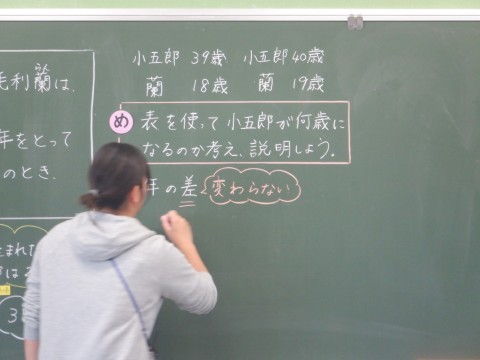 小五郎 39歳 小五郎 40歳
蘭 18歳 蘭 19歳
め 表を使って小五郎が何歳に
なるのか考え、説明しよう。
年の差 変わらない
毛利蘭は、
らん
年をとって
のとき、
まれた
3